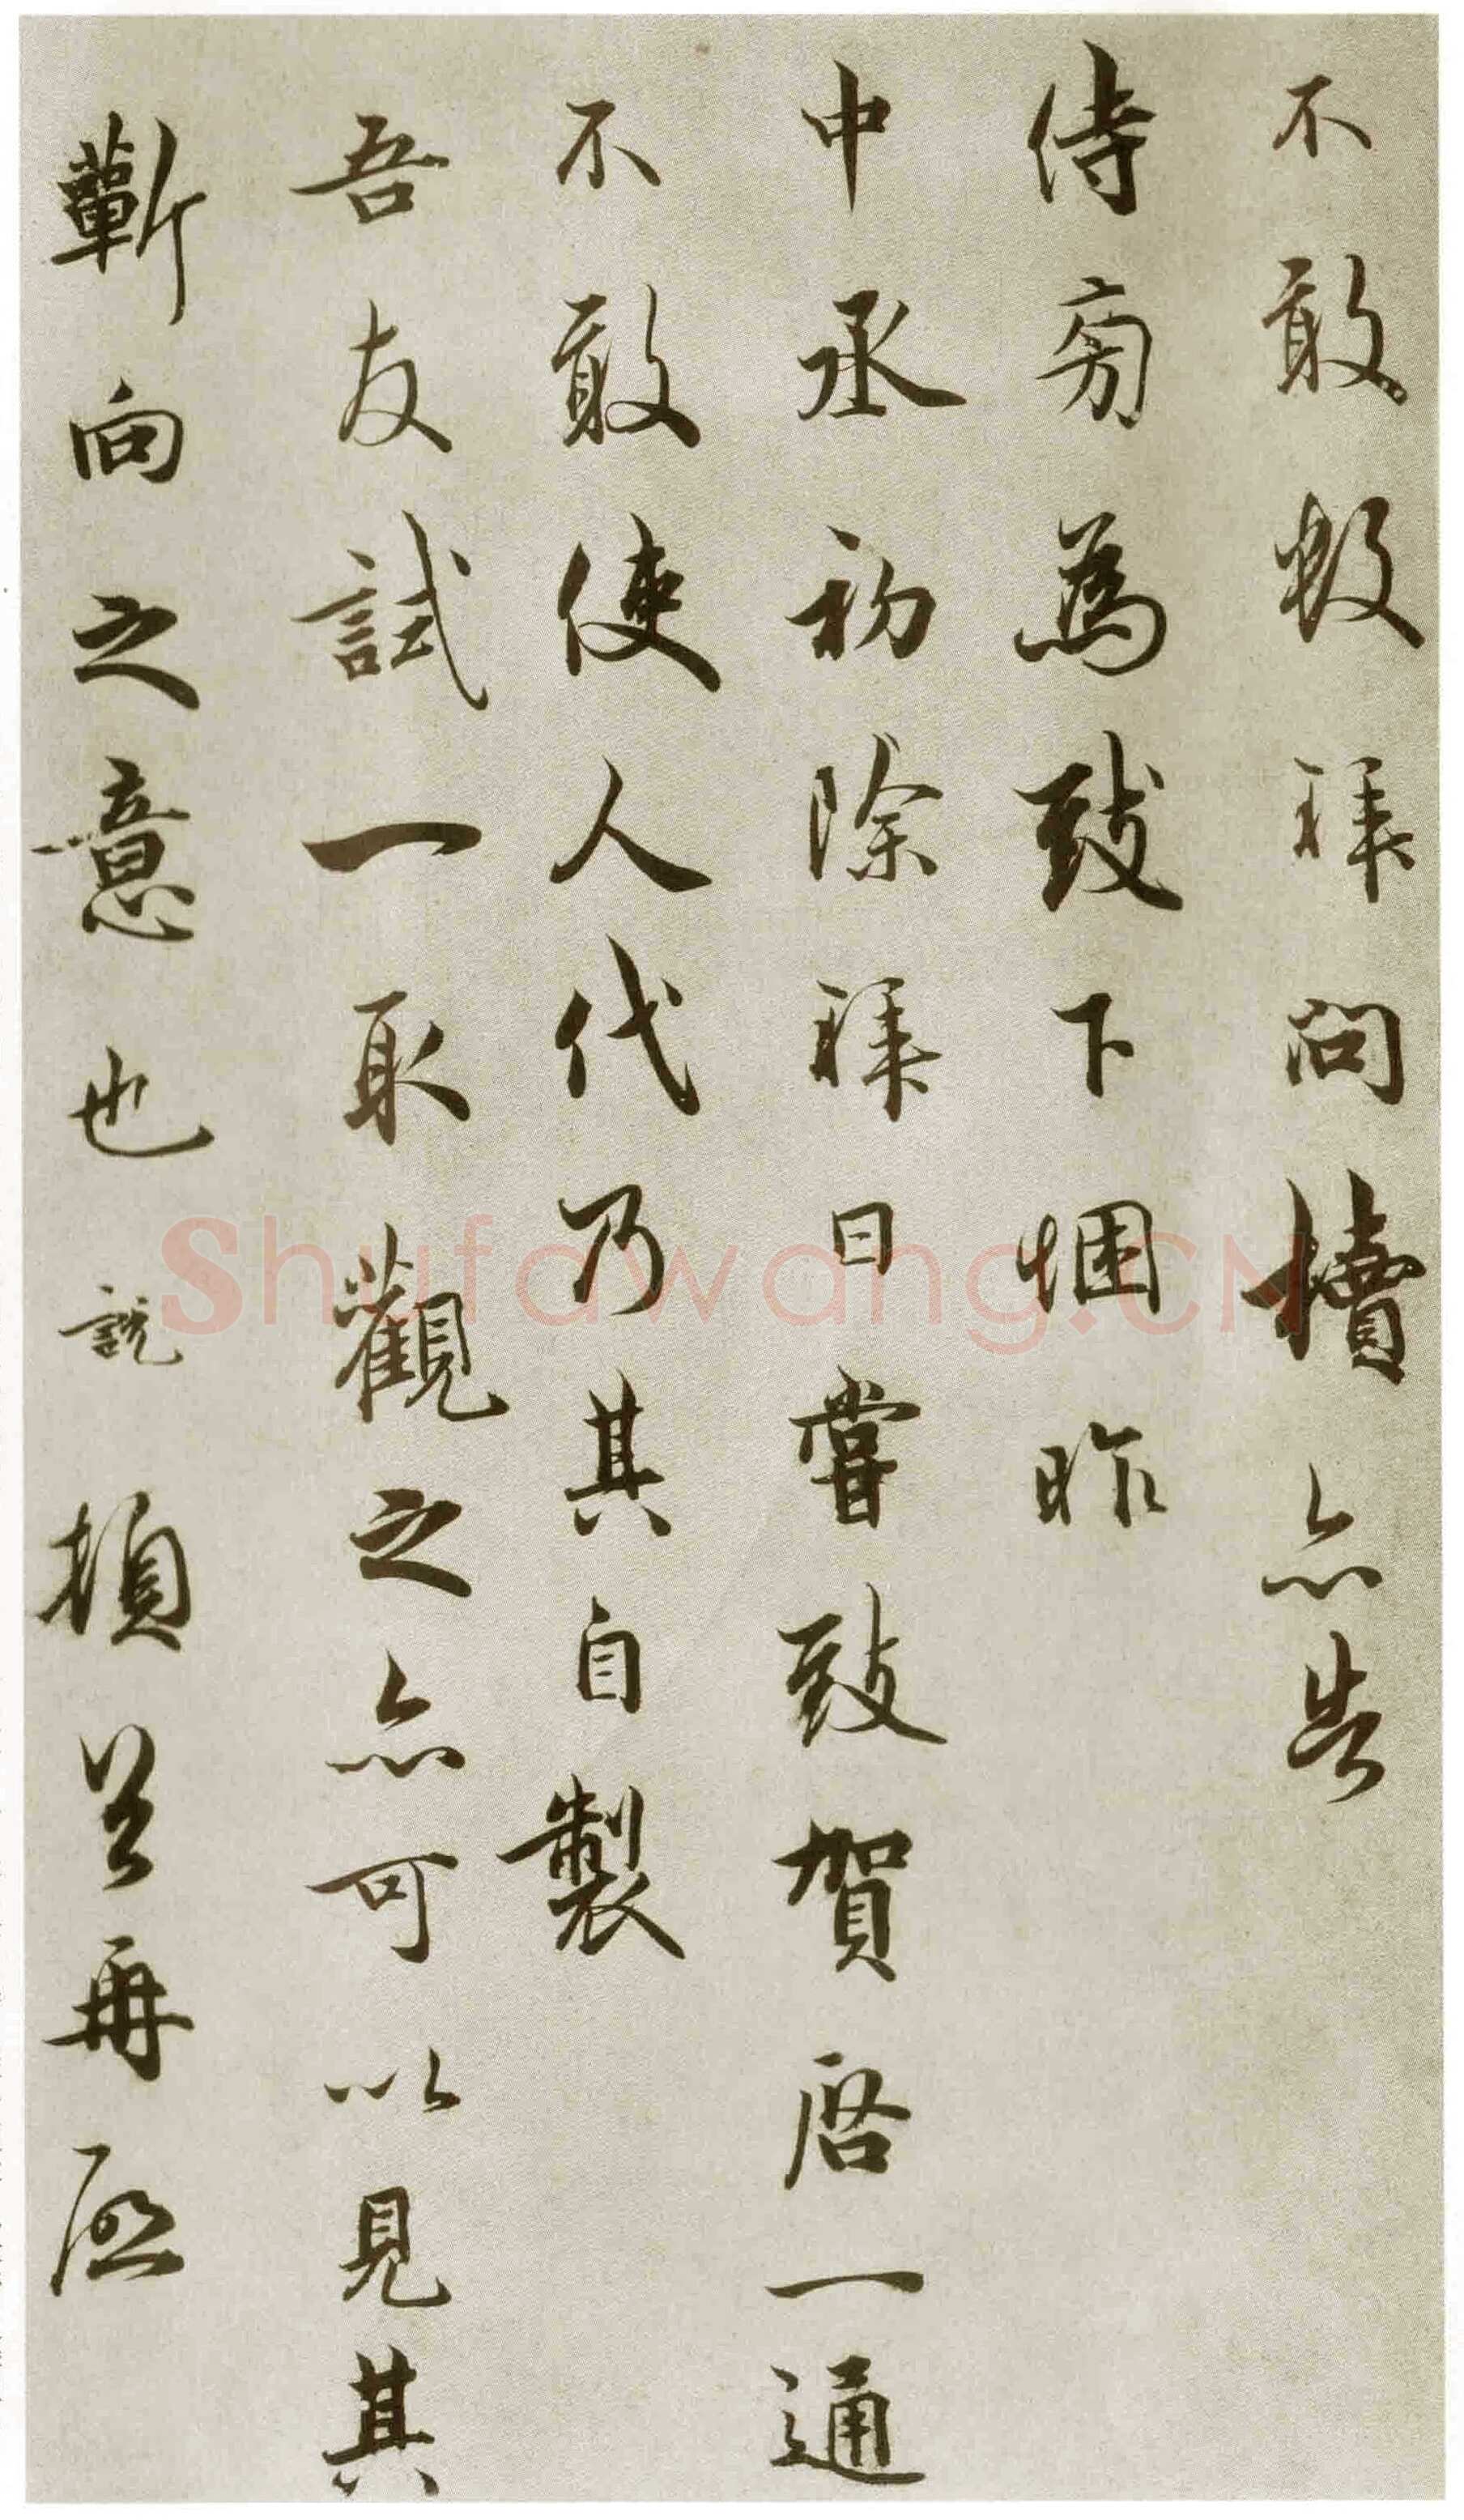 不敢數拜問櫝亦告
侍旁為致下悃昨
中丞初除拜日嘗致賀啓一通
不敢使人代乃其自製
吾友試一取觀之亦可以見其
蘄向之意也說頓首再啓
Shufawang.CN